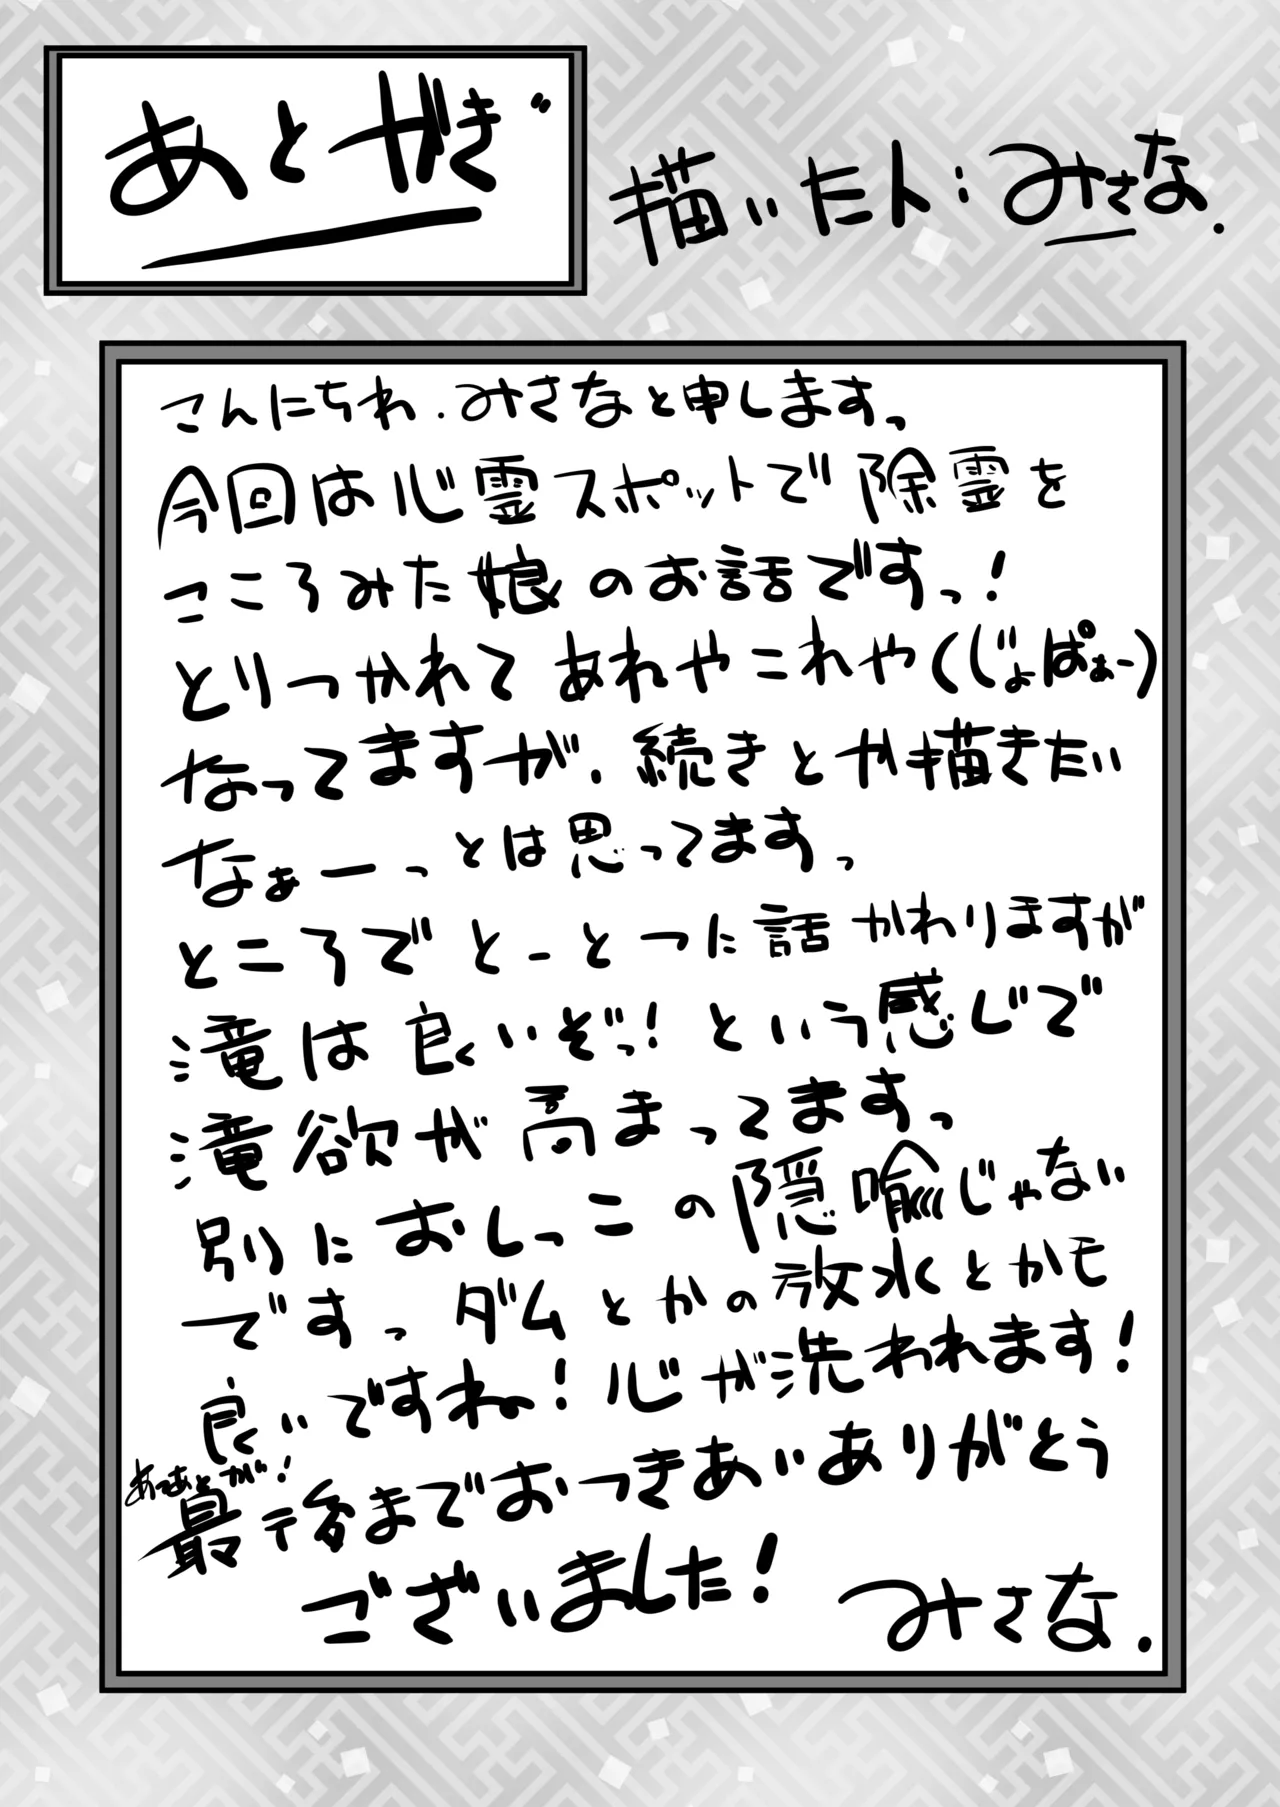 あとがき
描いた人:みさな.
こんにちわ.みさなと申します。
今回は心霊スポットで除霊を
こころみた娘のお話ですっ!
とりつかれてあれやこれや(じょぱぁー)
なってますが、続きとか描きたい
なぁーっとは思ってます。
ところでとーとつに話かわりますが
滝は良いぞっ!という感じで
滝欲が高まってます。
別におしっこの隠喩じゃない
です。ダムとかの放水とかも
良いですね!心が洗われます!
最後までおつきあいありがとう
ございました!
みさな.